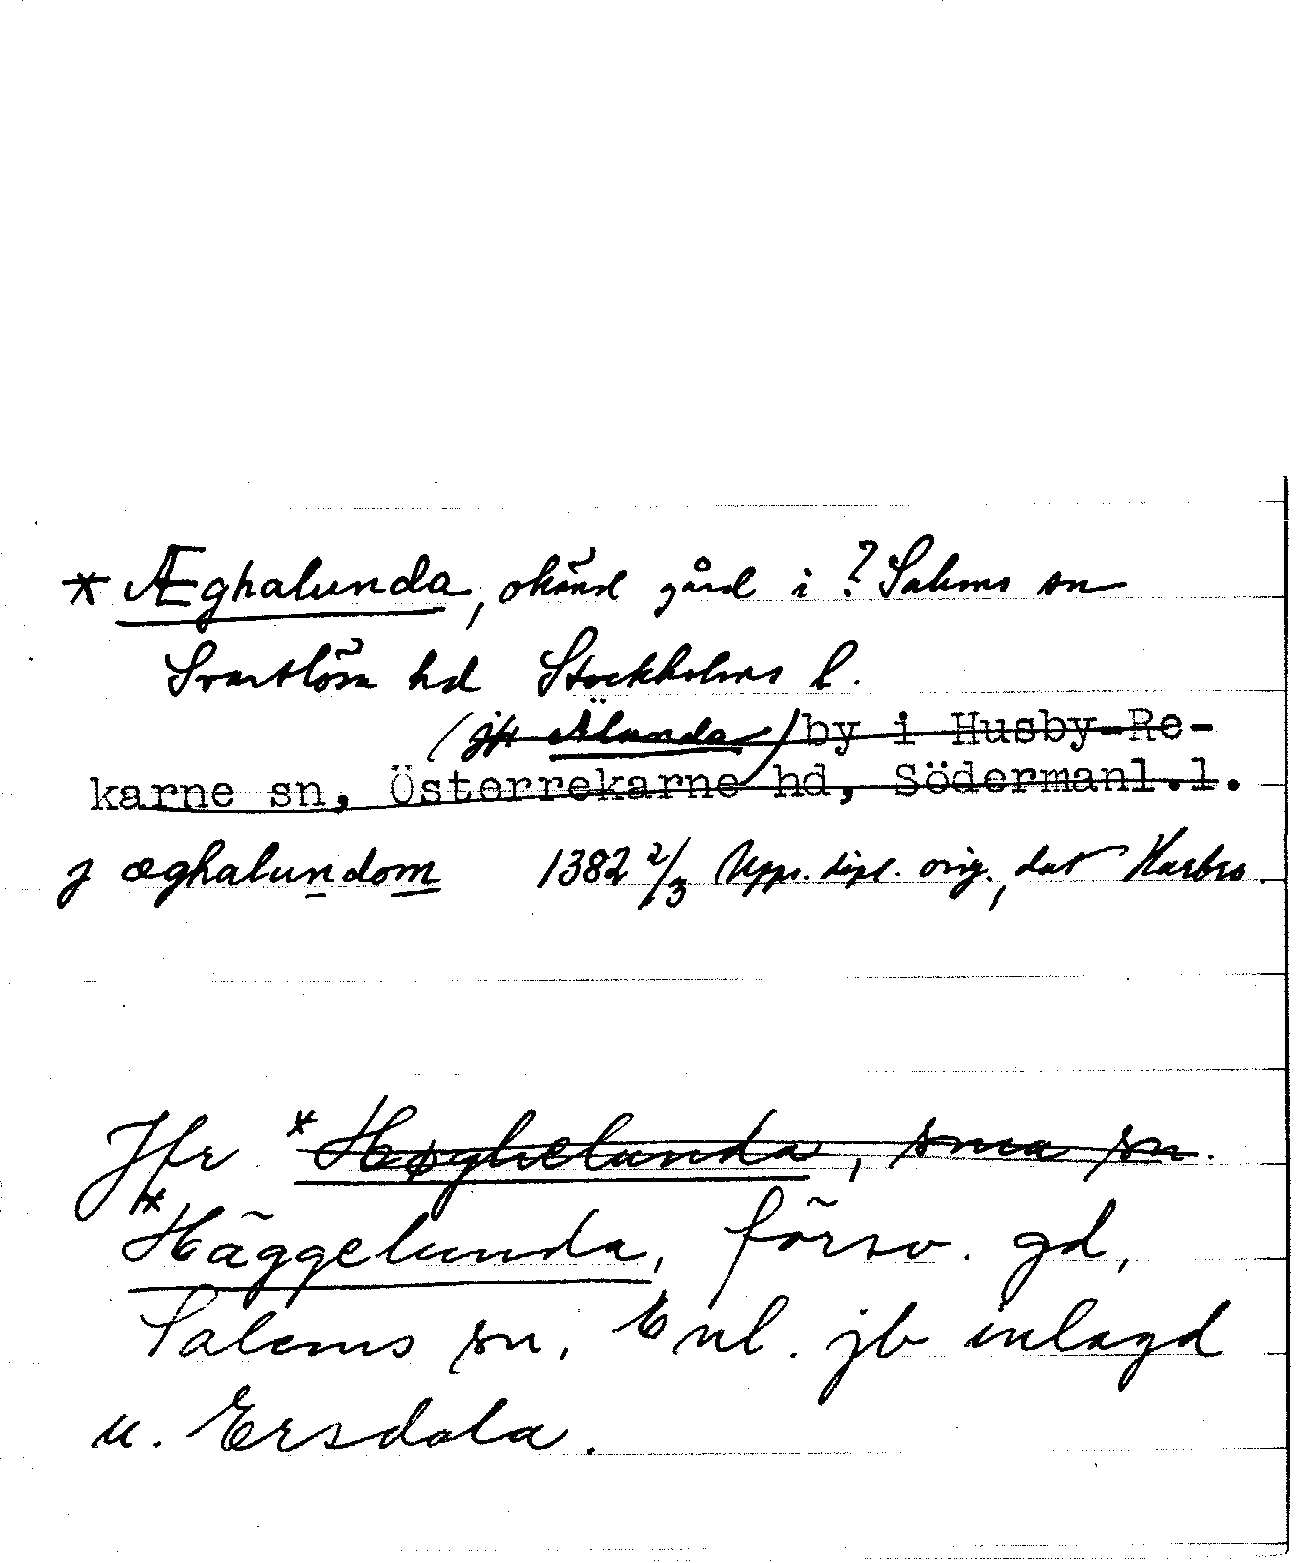 * Æghalunda, okänd gård i ? Salems sn
Svartlösa hd Stockholms l.
(jfr Älunda) by i Husby-Re-
karne sn, Österrekarne hd, Södermanl.l.
j æghalundom 1382 2/3 Upps. dipl. orig., dat Harbro.
Jfr *Høghelunda, sma sn.
*Häggelunda, försv. gd,
Salems sn. Enl. jb inlagd
u. Ersdala.